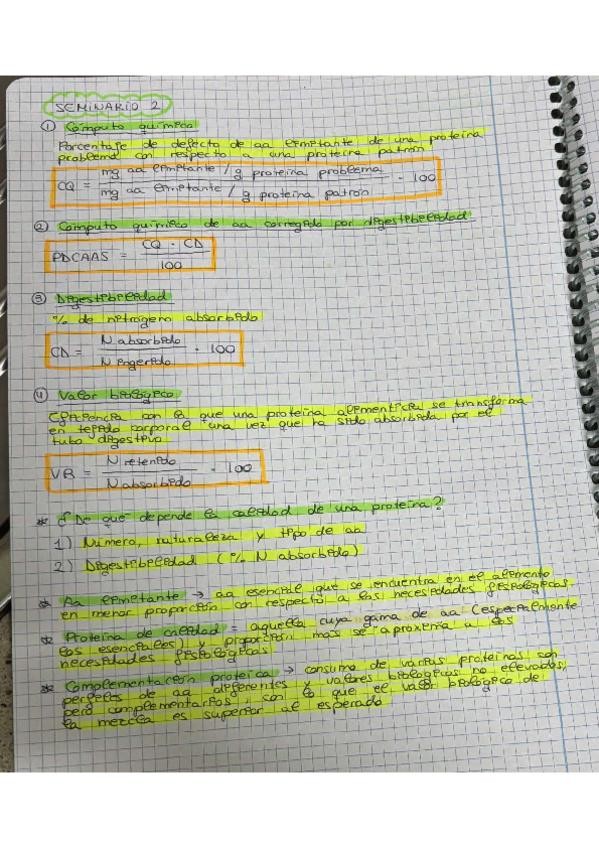 SEMINARIO 2
① Cómputo químico
Porcentaje de defecto de aa limitante de una proteína
problema con respecto a una proteína patrón
CQ = mg aa limitante / g proteína problema / mg aa limitante / g proteína patrón · 100
② Computo químico de aa corregido por digestibilidad
PDCAAS = CQ · CD / 100
③ Digestibilidad
% de nitrogeno absorbido
CD = N absorbido / N ingerido · 100
④ Valor biológico
Eficiencia con la que una proteína alimenticia se transforma
en tejido corporal una vez que ha sido absorbida por el
tubo digestivo
VB = N retenido / N absorbido · 100
* ¿De qué depende la calidad de una proteína?
1) Número, naturaleza y tipo de aa
2) Digestibilidad (% N absorbido)
* Aa limitante → aa esencial que se encuentra en el alimento
en menor proporción con respecto a las necesidades fisiológicas
* Proteína de calidad = aquella cuya gama de aa (especialmente
los esenciales) y proporción mas se aproxima a las
necesidades fisiológicas
* Complementación proteica → consumo de varias proteínas con
perfiles de aa diferentes y valores biológicos no elevados,
pero complementarios, con lo que el valor biológico de
la mezcla es superior al esperado